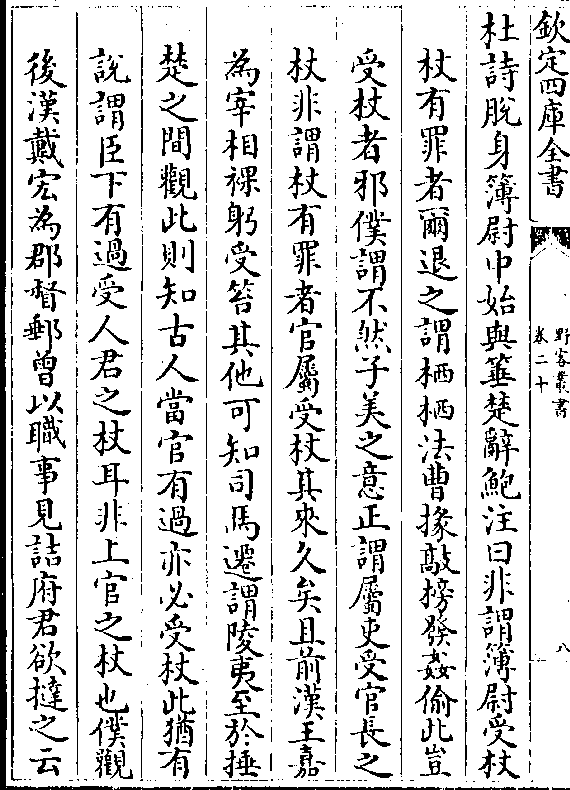 欽定四庫全書
野客叢書
卷二十
八
杜詩脫身簿尉中始與箠楚辭鮑注曰非謂簿尉受杖
杖有罪者爾退之謂栖栖法曹掾敲搒發姦偷此豈
受杖者邪僕謂不然子美之意正謂屬吏受官長之
杖非謂杖有罪者官屬受杖其來久矣且前漢王嘉
為宰相裸躬受笞其他可知司馬遷謂陵夷至於捶
楚之間觀此則知古人當官有過亦必受杖此猶有
說謂臣下有過受人君之杖耳非上官之杖也僕觀
後漢戴宏為郡督郵曾以職事見詰府君欲撻之云